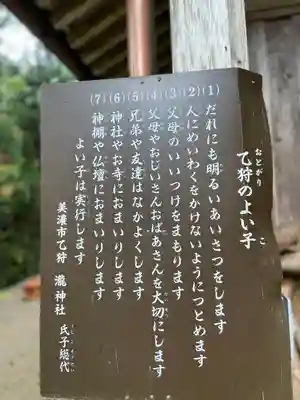 乙狩のよい子
おとがり こ
(1) だれにも明るいあいさつをします
(2) 人にめいわくをかけないようにつとめます
(3) 父母のいいつけをまもります
(4) 父母やおじいさんおばあさんを大切にします
(5) 兄弟や友達はなかよくします
(6) 神社やお寺におまいりします
(7) 神棚や仏壇におまいりします
よい子は実行します
美濃市乙狩 瀧神社 氏子総代